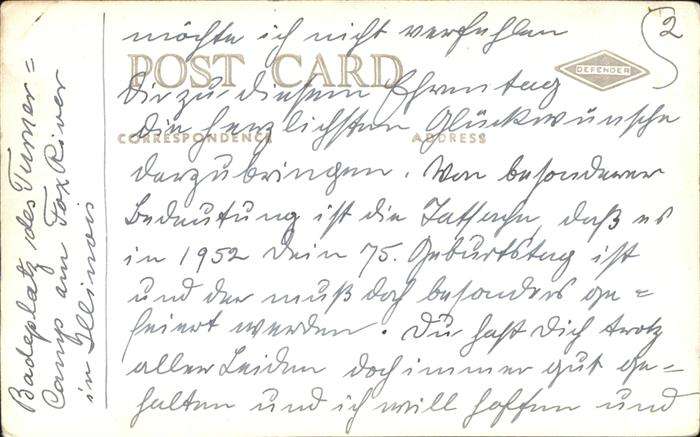 2
möchte ich nicht verfehlen
POST CARD
DEFENDER
Dir zu diesem Ehrentag
die herzlichsten Glückwünsche
CORRESPONDENCE ADDRESS
darzubringen. Von besonderer
Bedeutung ist die Tatsache, daß es
in 1952 Dein 75. Geburtstag ist
und der muß doch besonders ge=
feiert werden. Du hast Dich trotz
aller Leiden doch immer gut ge=
halten und ich will hoffen und
Badeplatz des Turner=
Camp am Fox River
in Illinois